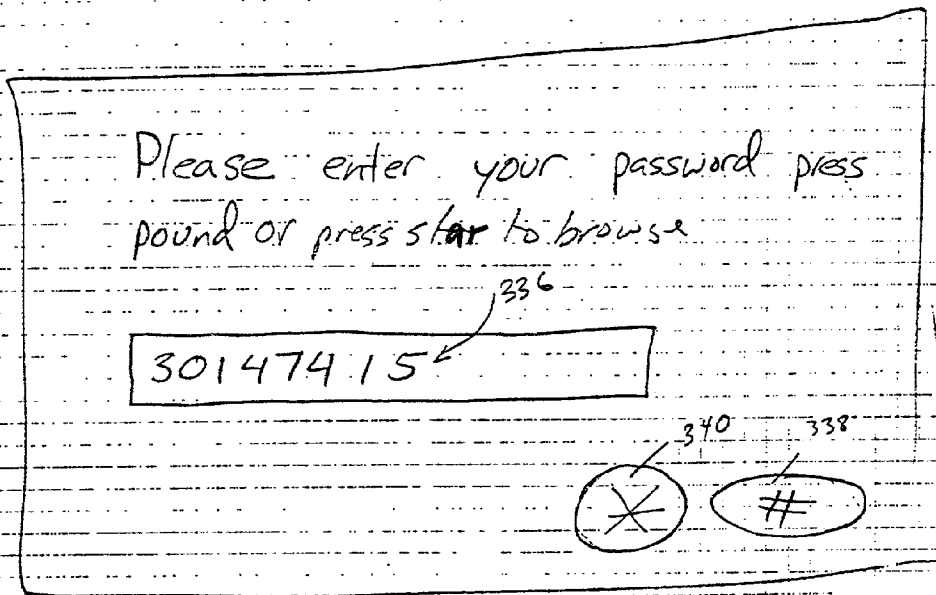 Please enter your password press
pound or press star to browse
336
30147415
340 338
* #